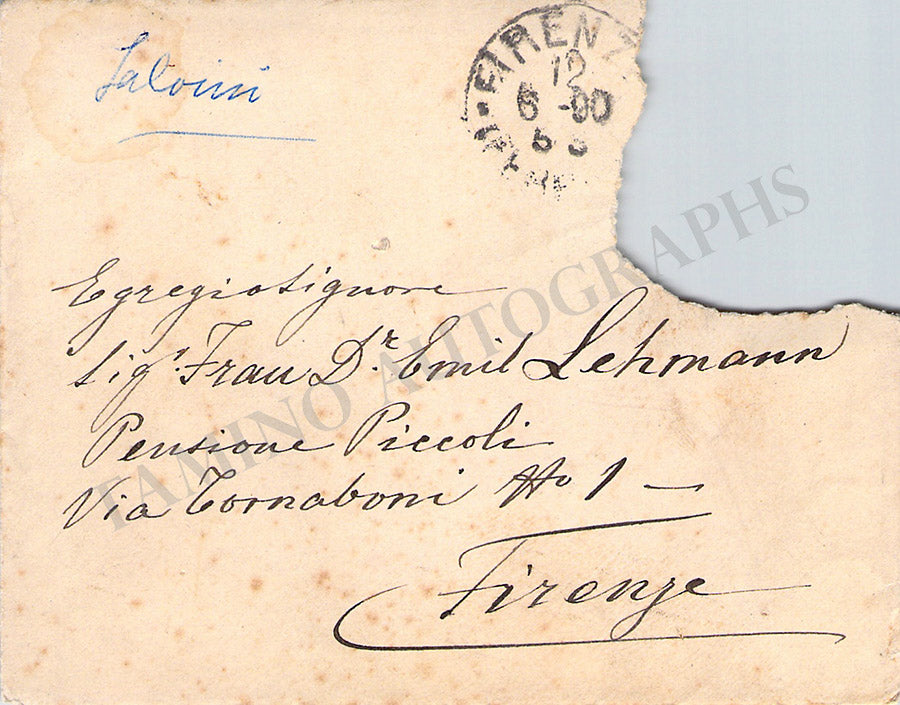 Salvini
FIRENZ
12
6 -90
5 S
Egregio Signore
Sigr. Frau Dr. Emil Lehmann
Pensione Piccoli
Via Tornaboni No 1 —
Firenze
TAMINO AUTOGRAPHS